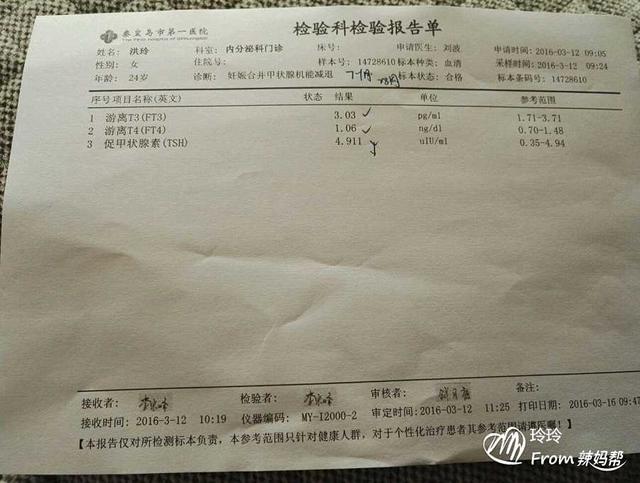 秦皇岛市第一医院 检验科检验报告单
姓名: 洪玲 科室: 内分泌科门诊 床号: 申请医生: 刘波 申请时间: 2016-03-12 09:05
性别: 女 住院号: 样本号: 14728610 标本种类: 血清 采样时间: 2016-3-12 09:24
年龄: 24岁 诊断: 妊娠合并甲状腺机能减退 标本状态: 合格 标本条码号: 14728610
序号 项目名称(英文) 状态 结果 单位 参考范围
1 游离T3(FT3) 3.03 pg/ml 1.71-3.71
2 游离T4(FT4) 1.06 ng/dl 0.70-1.48
3 促甲状腺素(TSH) 4.911 uIU/ml 0.35-4.94
接收者: 检验者: 审核者: 备注:
接收时间: 2016-3-12 10:19 仪器编码: MY-I2000-2 审定时间: 2016-03-12 11:25 打印日期: 2016-03-16 09:47
【本报告仅对所检测标本负责，本参考范围只针对健康人群，对于个性化治疗患者其参考范围请遵医嘱!】
玲玲
From 辣妈帮